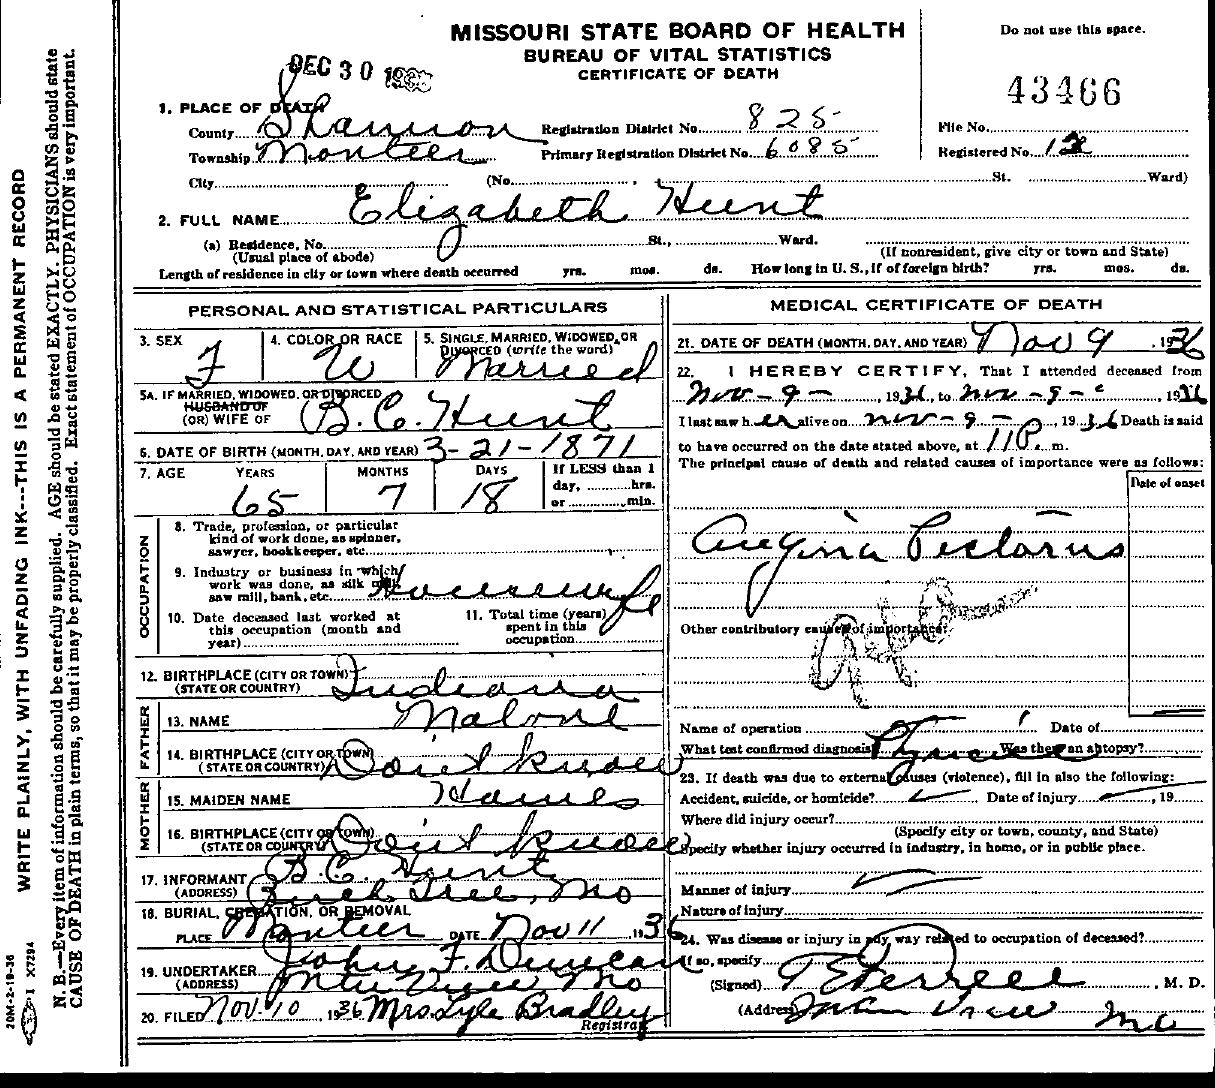 MISSOURI STATE BOARD OF HEALTH
BUREAU OF VITAL STATISTICS
CERTIFICATE OF DEATH
Do not use this space.
DEC 30
43466
1. PLACE OF DEATH
County Shannon Registration District No. 825 File No.
Township Montier Primary Registration District No. 6085 Registered No. 12
City (No. , St. Ward)
2. FULL NAME Elizabeth Hunt
(a) Residence, No. St., Ward.
(Usual place of abode) (If nonresident, give city or town and State)
Length of residence in city or town where death occurred yrs. mos. ds. How long in U. S., if of foreign birth? yrs. mos. ds.
PERSONAL AND STATISTICAL PARTICULARS
3. SEX F
4. COLOR OR RACE W
5. SINGLE, MARRIED, WIDOWED, OR DIVORCED (write the word) Married
5A. IF MARRIED, WIDOWED, OR DIVORCED
HUSBAND OF
(OR) WIFE OF B. C. Hunt
6. DATE OF BIRTH (MONTH, DAY, AND YEAR) 3-21-1871
7. AGE YEARS MONTHS DAYS If LESS than 1
day, hrs.
65 7 18 or min.
OCCUPATION
8. Trade, profession, or particular
kind of work done, as spinner,
sawyer, bookkeeper, etc.
9. Industry or business in which
work was done, as silk mill,
saw mill, bank, etc. Housewife
10. Date deceased last worked at
this occupation (month and
year)
11. Total time (years)
spent in this
occupation
12. BIRTHPLACE (CITY OR TOWN)
(STATE OR COUNTRY) Indiana
FATHER
13. NAME Malone
14. BIRTHPLACE (CITY OR TOWN)
(STATE OR COUNTRY) Don't know
MOTHER
15. MAIDEN NAME Hames
16. BIRTHPLACE (CITY OR TOWN)
(STATE OR COUNTRY) Don't know
17. INFORMANT B. C. Hunt
(ADDRESS) Birch Tree, Mo
18. BURIAL, CREMATION, OR REMOVAL
PLACE Montier DATE Nov 11 1936
19. UNDERTAKER John F. Duncan
(ADDRESS) Mtn View Mo
20. FILED Nov. 10 1936 Mrs Lyle Bradley
Registrar
MEDICAL CERTIFICATE OF DEATH
21. DATE OF DEATH (MONTH, DAY, AND YEAR) Nov 9 , 1936
22. I HEREBY CERTIFY, That I attended deceased from
Nov - 9 - , 1936, to Nov - 9 - , 1936
I last saw her alive on Nov - 9 - , 1936 Death is said
to have occurred on the date stated above, at 11 P. m.
The principal cause of death and related causes of importance were as follows:
Date of onset
Angina Pectorus
Other contributory causes of importance:
Name of operation Date of
What test confirmed diagnosis? Was there an autopsy?
23. If death was due to external causes (violence), fill in also the following:
Accident, suicide, or homicide? Date of injury , 19
Where did injury occur?
(Specify city or town, county, and State)
Specify whether injury occurred in industry, in home, or in public place.
Manner of injury
Nature of injury
24. Was disease or injury in any way related to occupation of deceased?
If so, specify
(Signed) , M. D.
(Address) Mtn View Mo
WRITE PLAINLY, WITH UNFADING INK---THIS IS A PERMANENT RECORD
N. B.—Every item of information should be carefully supplied. AGE should be stated EXACTLY. PHYSICIANS should state
CAUSE OF DEATH in plain terms, so that it may be properly classified. Exact statement of OCCUPATION is very important.
20M-2-18-36
X7294